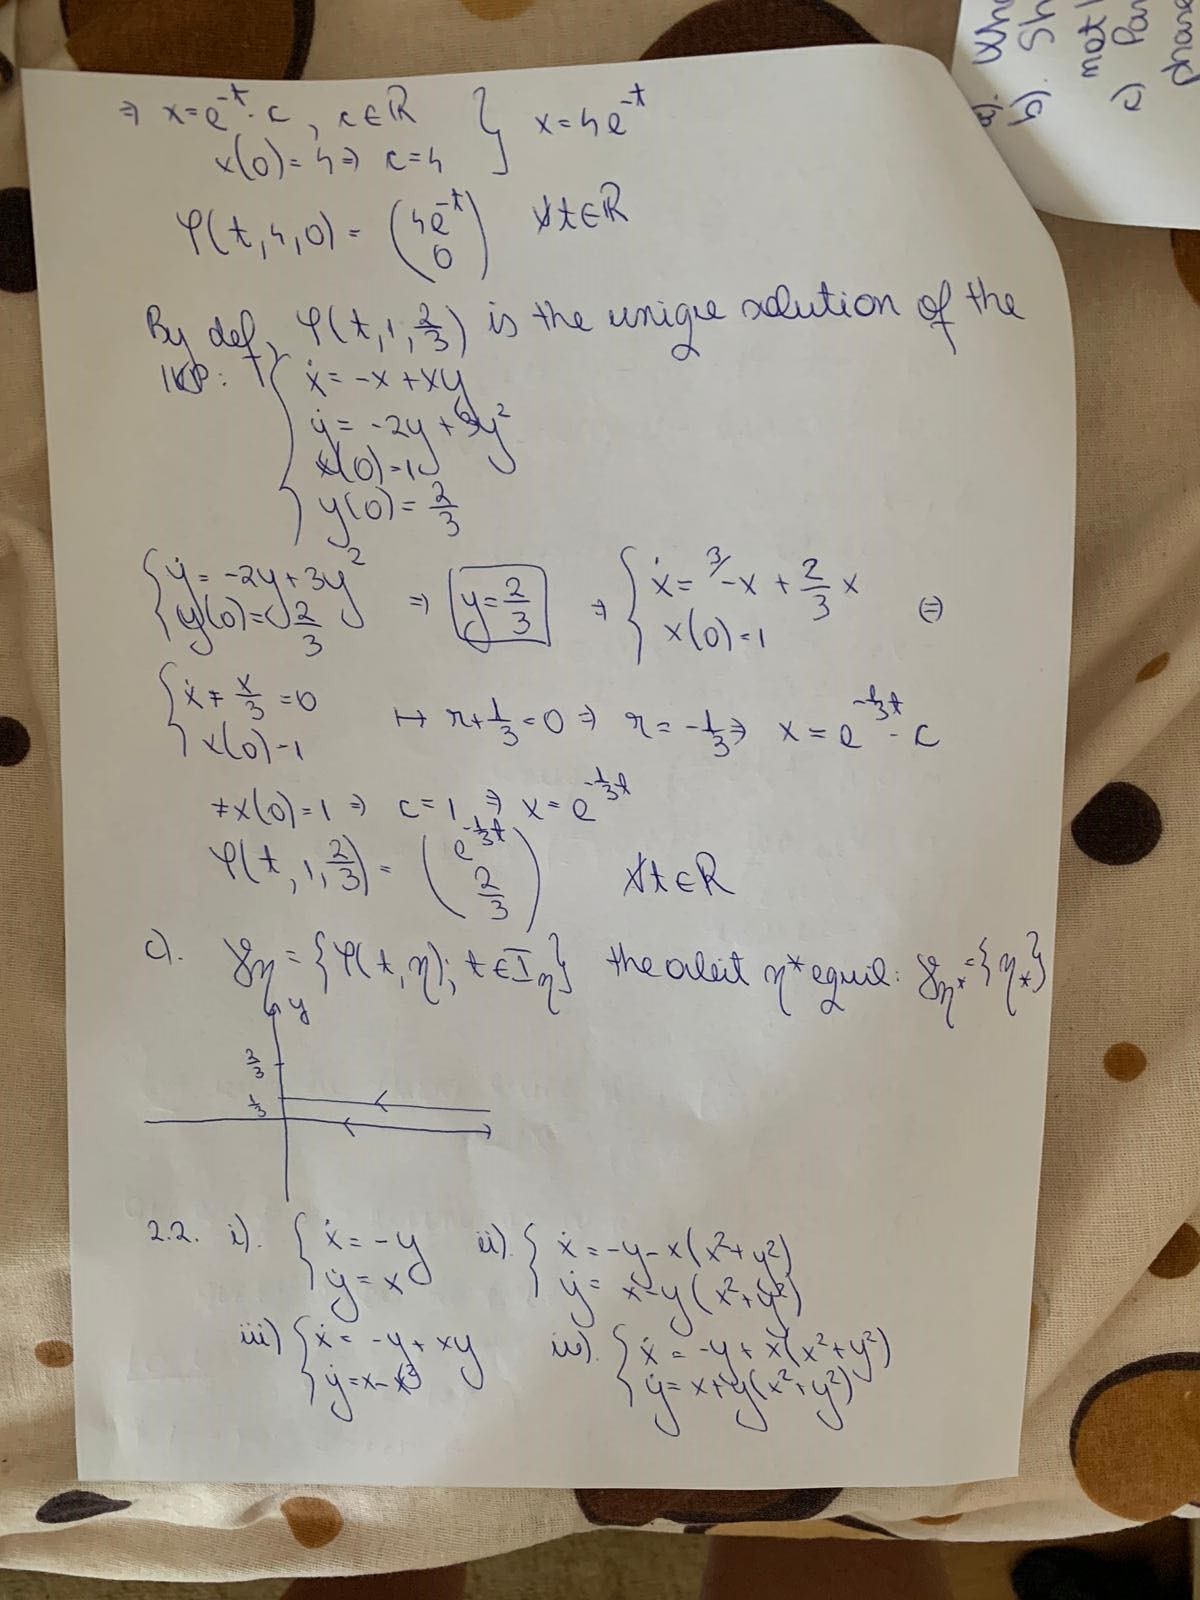 ⇒ x = e^{-t} · c, c ∈ ℝ } x = 4e^{-t}
x(0) = 4 ⇒ c = 4
φ(t, 4, 0) = (4e^{-t} 0) ∀t ∈ ℝ
By def, φ(t, 1, 2/3) is the unique solution of the
IVP: { ẋ = -x + xy
ẏ = -2y + 3y²
x(0) = 1
y(0) = 2/3
{ ẏ = -2y + 3y² y(0) = 2/3 ⇒ y = 2/3 ⇒ { ẋ = -x + 2/3 x x(0) = 1 (=)
{ ẋ + x/3 = 0 x(0) = 1 ↦ r + 1/3 = 0 ⇒ r = -1/3 ⇒ x = e^{-1/3 t} · c
x(0) = 1 ⇒ c = 1 ⇒ x = e^{-1/3 t}
φ(t, 1, 2/3) = (e^{-1/3 t} 2/3) ∀t ∈ ℝ
c). γη = {φ(t, η); t ∈ Iη} the orbit η* equil: γη* = {η*}
y
2/3
1/3
2.2. i). { ẋ = -y ẏ = x ii). { ẋ = -y - x(x² + y²) ẏ = x - y(x² + y²)
iii) { ẋ = -y + xy ẏ = x - x² iv). { ẋ = -y + x(x² + y²) ẏ = x + y(x² + y²)
a). Wha
b). Sh
not
c) Par
phase